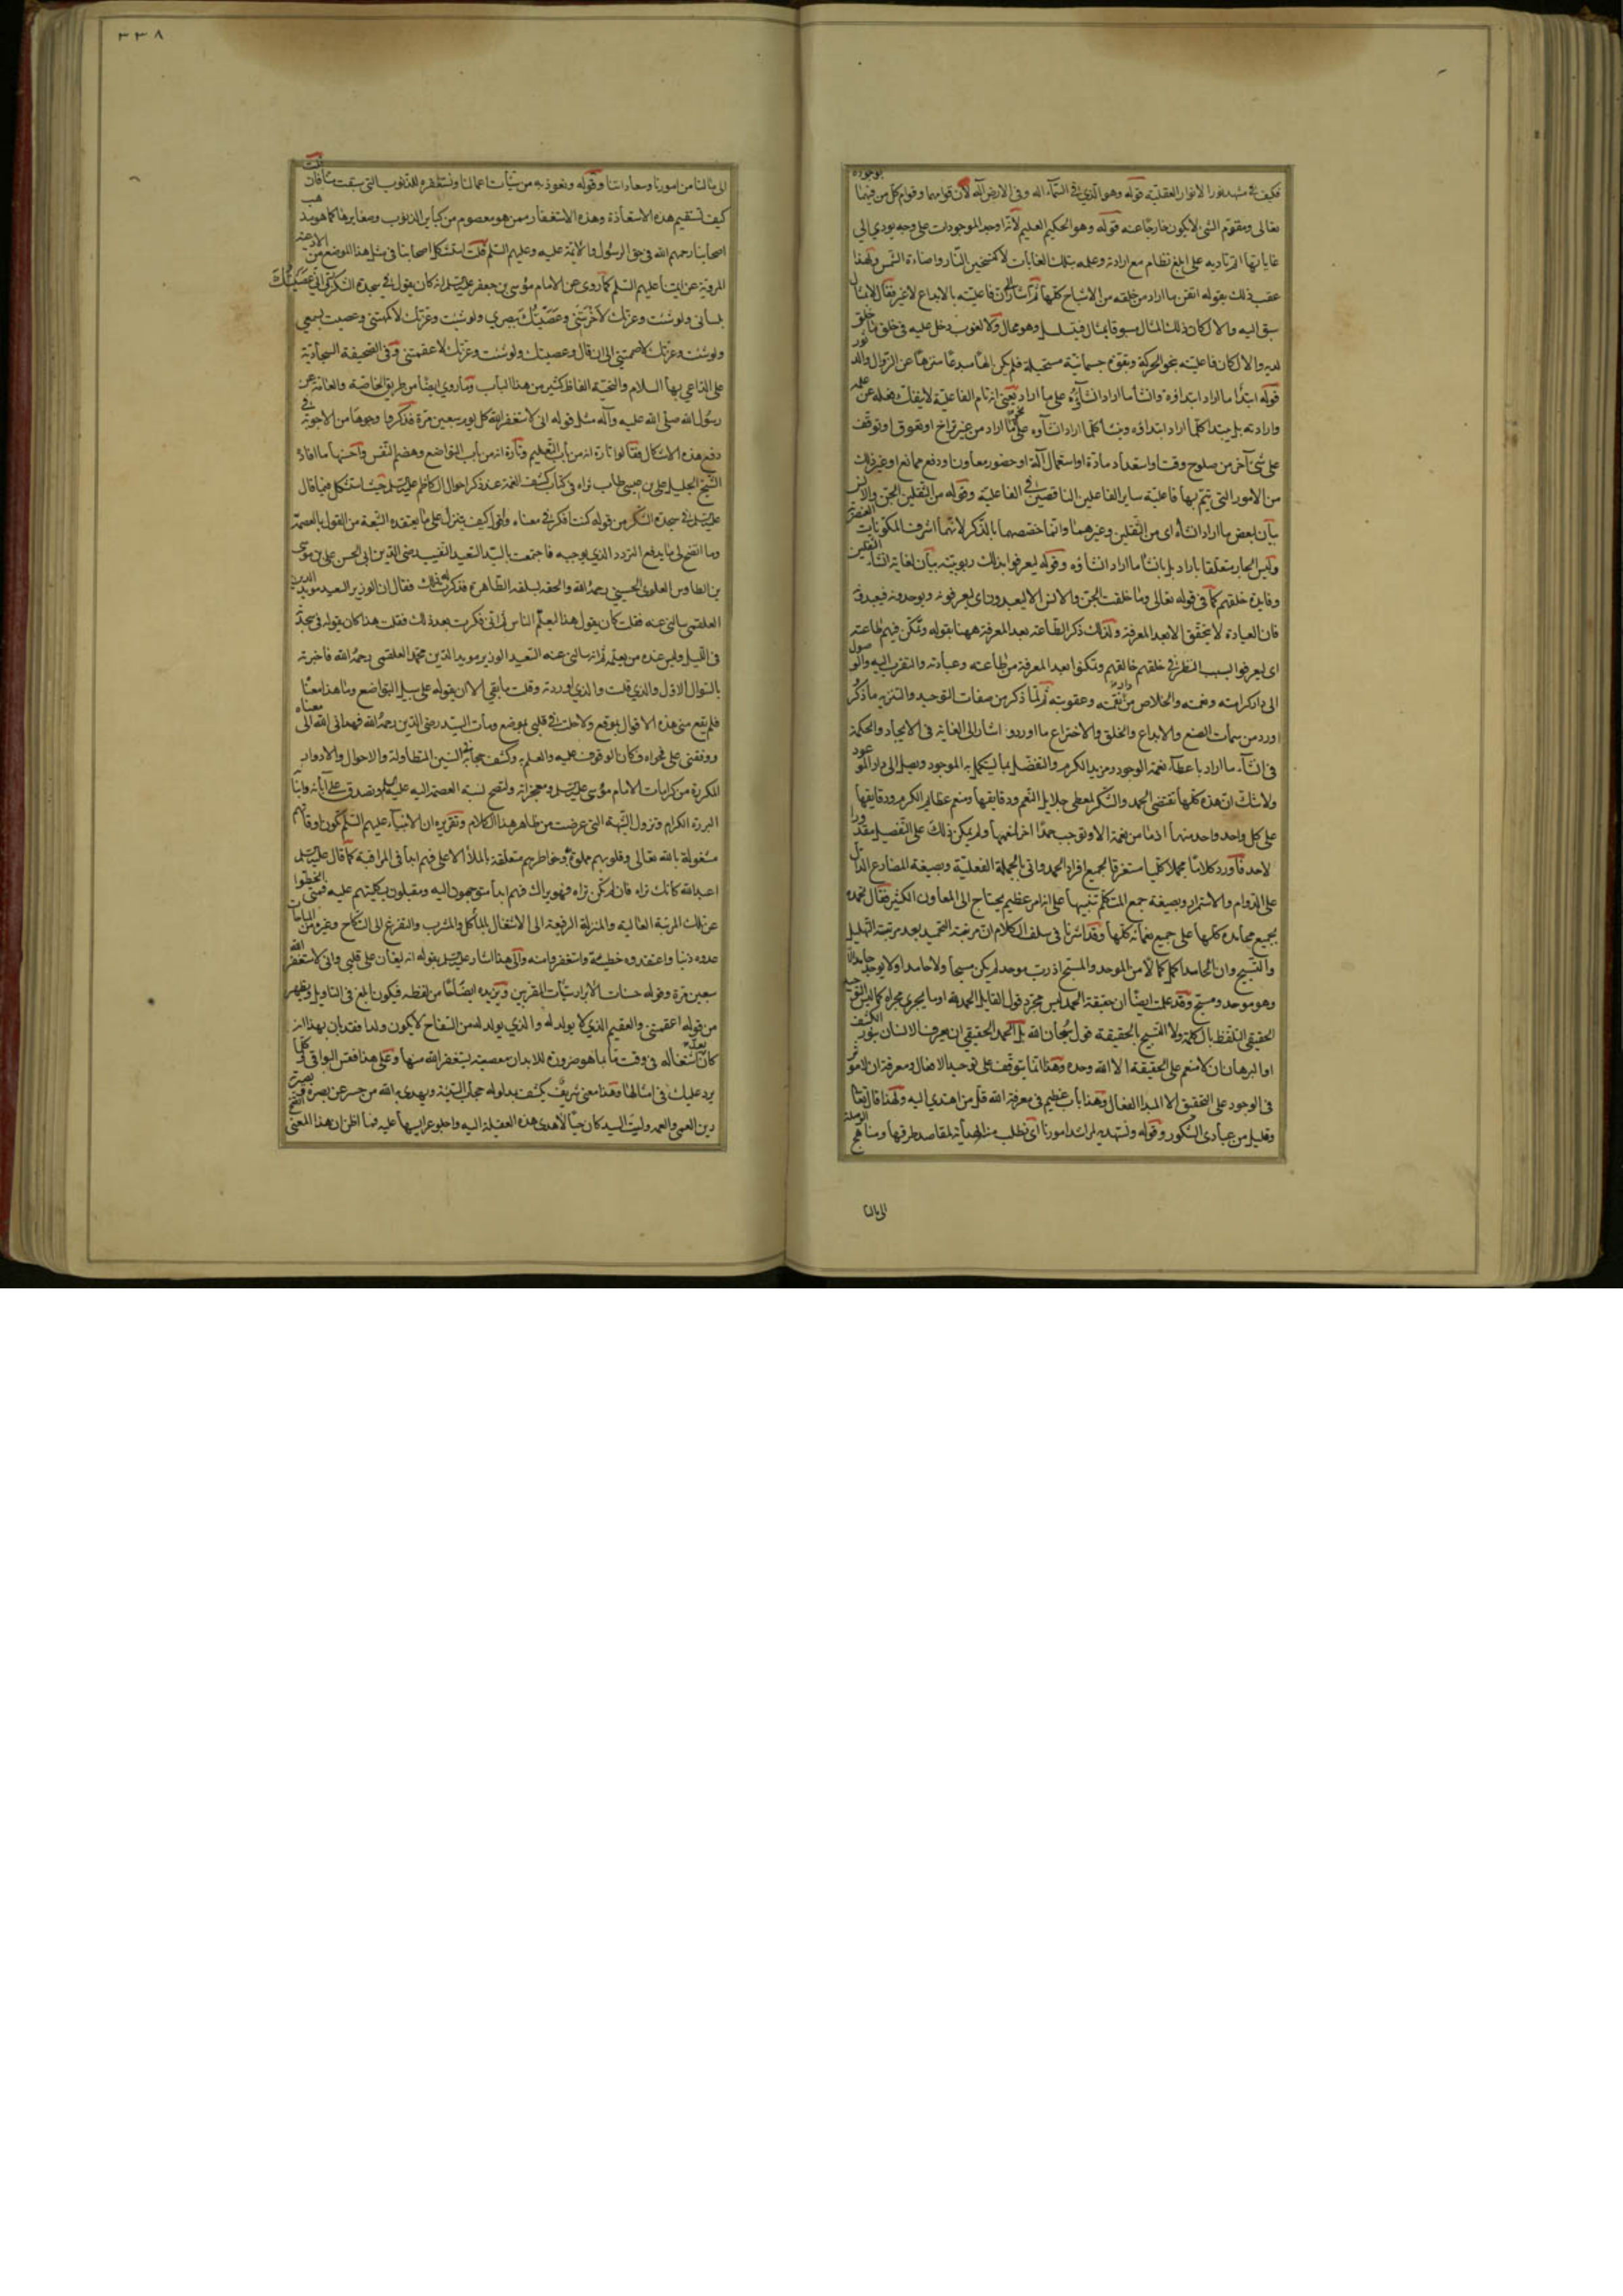 فكيف في مشهد نور الانوار العقلية قوله وهو الذي في السماء اله وفي الارض اله لان قوامهما وقوام كل من فيهما بوجوده
تعالى ومقوم الشئ لا يكون خارجا عنه قوله وهو الحكيم العليم لانه اوجد الموجودات على وجه يودي الى
غاياتها المترتبة على ابلغ نظام مع ارادته وعلمه بتلك الغايات لا كتسخين النار واضاءة الشمس ولهذا
عقب ذلك بقوله اتقن ما اراد من خلقه من الاشباح كلها ثم اشار الى ان فاعليته بالابداع لا غير فقال لا بمثال
سبق اليه والا لكان ذلك المثال مسبوقا بمثال فيتسلسل وهو محال ولا لغوب دخل عليه في خلق ما خلق
لديه والا لكان فاعليته بنحو الحركة وبقوة جسمانية مستحيلة فلم يكن الها مبدعا منزها عن الزوال والدثور
قوله ابتدأ ما اراد ابتداؤه وانشأ ما اراد انشاؤه على ما اراد يعني انه تام الفاعلية لا ينفك فعله عن علمه
وارادته بل يبتدا كلما اراد ابتداؤه وينشأ كلما اراد انشاؤه على نحو ما اراد من غير تراخ او تعوق او توقف
على شئ آخر من صلوح وقت واستعداد مادة او استعمال آلة او حضور معاون او دفع ممانع او غير ذلك
من الامور التي يتم بها فاعلية ساير الفاعلين الناقصين في الفاعلية وقوله من الثقلين الجن والانس
بيان لبعض ما اراد انشاءه اى من الثقلين وغيرهما وانما خصهما بالذكر لانهما اشرف المكونات العنصرية
وليس الجار متعلقا باراد بل بانشأ ما اراد انشاؤه وقوله ليعرفوا بذلك ربوبيته بيان لغاية انشاء الثقلين
وفايدة خلقهم كما في قوله تعالى وما خلقت الجن والانس الا ليعبدون اى ليعرفونه ويوحدونه فيعبدونه
فان العبادة لا يتحقق الا بعد المعرفة ولذلك ذكر الطاعة بعد المعرفة ههنا بقوله وتمكن فيهم طاعته
اى ليعرفوا بسبب النظر في خلقهم خالقهم وتمكنوا بعد المعرفة من طاعته وعبادته والتقرب اليه والوصول
الى دار كرامته ونعمته والخلاص من دار نقمته وعقوبته ثم لما ذكر من صفات التوحيد والتنزيه ما ذكر
اورد من سمات الصنع والابداع والخلق والاختراع ما اورد و اشار الى الغاية في الايجاد والحكمة
في انشاء ما اراد باعطاء نعمة الوجود ومزيد الكرم والتفضل بما ليكمل به الموجود ويصل الى دار الموعود
ولا شك ان هذه كلها تقتضي الحمد والشكر لمعطي جلايل النعم ودقايقها ومنعم عظاير الكرم ودقايقها
على كل واحد واحد منهما اذ ما من نعمة الا وتوجب حمدا اخر لمنعمها ولم يكن ذلك على التفصيل مقدورا
لاحد فاورد كلاما مجملا كليا مستغرقا لجميع افراد الحمد واتى بالجملة الفعلية وبصيغة المضارع الدال
على الدوام والاستمرار وبصيغة جمع المتكلم تنبيها على انه امر عظيم يحتاج الى المعاون الكثير فقال نحمده
بجميع محامده كلها على جميع نعمائه كلها وقد اشرنا في سلف الكلام ان مرتبة التحميد بعد مرتبة التهليل
والتسبيح وان الحامد اكمل كمالا من الموحد والمسبح اذ رب موحد لم يكن مسبحا ولا حامدا ولا يوجد حامد الا
وهو موحد ومسبح وقد علمت ايضا ان حقيقة الحمد ليس مجرد قول القايل الحمد لله او ما يجري مجراه كما ليس التوحيد
الحقيقي التلفظ بالكلمة ولا التسبيح بالحقيقة قول سبحان الله بل الحمد الحقيقي ان يعرف الانسان بنور الكشف
او البرهان ان لا منعم على الحقيقة الا الله وحده وهذا انما يتوقف على توحيد الافعال ومعرفة ان لا مؤثر
في الوجود على التحقيق الا المبدا الفعال وهذا باب عظيم في معرفة الله قل من اهتدي اليه ولهذا قال تعالى
وقليل من عبادي الشكور وقوله ونستهديه لمراشد امورنا اى نطلب منه الهداية لمقاصد طرقها ومناهج الموصلة
الى مالنا
٣٣٨
الى مالنا من امورنا وسعاداتنا وقوله ونعوذ به من سيئات اعمالنا ونستغفره للذنوب التي سبقت منا فان قلت
كيف تستقيم هذه الاستعاذة وهذه الاستغفار ممن هو معصوم من كباير الذنوب وصغايرها كما هو مذهب
اصحابنا رحمهم الله في حق الرسول والائمة عليه وعليهم السلم قلت استشكل اصحابنا في مثل هذا الموضع من الادعية
المروية عن ائمتنا عليهم السلم كما روى عن الامام موسى بن جعفر عليه السلم انه كان يقول في سجدة الشكر رب انى عصيتك
بلساني ولو شئت وعزتك لاخرستني وعصيتك ببصري ولو شئت وعزتك لاكمهتني وعصيت بسمعي
ولو شئت وعزتك لاصممتني الى ان قال وعصيتك ولو شئت وعزتك لاعقمتني وفى الصحيفة السجادية
على الداعي بها السلام والتحية الفاظ كثير من هذا الباب وما روي ايضا من طريق الخاصة والعامة عن
رسول الله صلى الله عليه وآله مثل قوله انى لاستغفر الله كل يوم سبعين مرة فذكروا وجوها من الاجوبة في
دفع هذه الاشكال فقالوا تارة انه من باب التعليم وتارة انه من باب التواضع وهضم النفس واحسنها ما افاده
الشيخ الجليل على بن عيسى طاب ثراه في كتاب كشف الغمة عند ذكر احوال الكاظم عليه السلم حيث استشكل فيما قال
عليه السلم في سجدة الشكر من قوله كنت افكر في معناه واقول كيف يتنزل على ما يعتقده الشيعة من القول بالعصمة
وما اتضح لى ما يدفع التردد الذي يوجبه فاجتمعت بالسيد السعيد النقيب رضى الدين ابي الحسن على بن موسى
بن الطاوس العلوى الحسيني رحمه الله والحقه بسلفه الطاهر فذكرت له ذلك فقال ان الوزير السعيد مويد الدين
العلقمي سالني عنه فقلت كان يقول هذا ليعلم الناس ثم انى فكرت بعد ذلك فقلت هذا كان يقوله في سجدته
في الليل وليس عنده من يعلمه ثم انه سالني عنه السعيد الوزير مويد الدين محمد العلقمي رحمه الله فاخبرته
بالسوال الاول والذي قلت والذي اوردته وقلت ما بقي الا ان يقوله على سبيل التواضع وما هذا معناه
فلم يقع منى هذه الاقوال بموقع ولا حلت في قلبي بموضع ومات السيد رضي الدين رحمه الله فهداني الله الى معناه
ووفقني على فحواه فكان الوقوف عليه والعلم به وكشف حجابه بعد السنين المتطاولة والاحوال والادوار
المكررة من كرامات الامام موسى عليه السلم ومعجزاته ولتصح نسبة العصمة اليه عليه السلم وتصدق على آبائه وابنائه
البررة الكرام وتزول الشبهة التي عرضت من ظاهر هذا الكلام وتقريره ان الانبياء عليهم السلم تكون اوقاتهم
مشغولة بالله تعالى وقلوبهم مملوة به وخواطرهم متعلقة بالملأ الاعلى فهم ابدا في المراقبة كما قال عليه السلم
اعبد الله كانك تراه فان لم تكن تراه فهو يراك فهم ابدا متوجهون اليه ومقبلون بكليتهم عليه فمتى انحطوا
عن تلك المرتبة العالية والمنزلة الرفيعة الى الاشتغال بالمأكل والمشرب والتفرغ الى النكاح وغيره من المباحات
عدوه ذنبا واعتقدوه خطيئة واستغفروا منه والى هذا اشار عليه السلم بقوله انه ليغان على قلبي وانى لاستغفر الله
سبعين مرة وقوله حسنات الابرار سيئات المقربين ونزيده ايضاحا من لفظه فيكون ابلغ في التاويل ويظهر
من قوله اعقمتني والعقيم الذي لا يولد له والذي يولد له من السفاح لا يكون ولدا فقد بان بهذا انه
كان اشتغاله في وقت ما بما هو ضرورة للابدان معصية يستغفر الله منها وعلى هذا فقس البواقي وكلما
يرد عليك في امثالها وهذا معنى شريف يكشف بمدلوله حجاب الشبهة ويهدى به الله من حسر عن بصره وبصيرته
رين العمى والعمه وليت السيد كان حيا لاهدى هذه العقيلة اليه واجلو عرايسها عليه فما اظن ان هذا المعنى اتضح